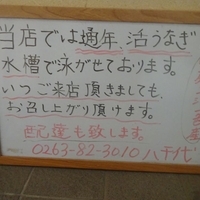 当店では通年、活うなぎ
水槽で泳がせております。
いつご来店頂きましても、
お召し上がり頂けます。
配達も致します
0263-82-3010 八千代